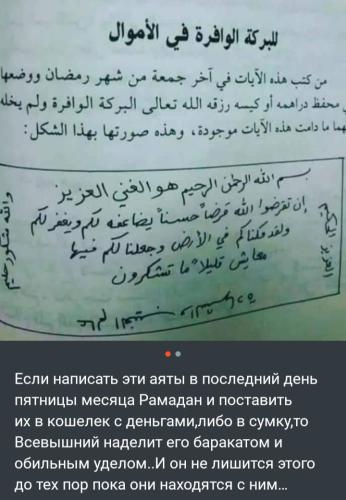 للبركة الوافرة في الأموال
من كتب هذه الآيات في آخر جمعة من شهر رمضان ووضعها
ي محفظ دراهمه أو كيسه رزقه الله تعالى البركة الوافرة ولم يخله
هما ما دامت هذه الآيات موجودة، وهذه صورتها بهذا الشكل:
بسم الله الرحمن الرحيم هو الغني العزيز
إن تقرضوا الله قرضاً حسناً يضاعفه لكم ويغفر لكم
ولقد مكناكم في الأرض وجعلنا لكم فيها
معايش قليلاً ما تشكرون
العزيز الحكيم
والله شكور حليم
Если написать эти аяты в последний день
пятницы месяца Рамадан и поставить
их в кошелек с деньгами,либо в сумку,то
Всевышний наделит его баракатом и
обильным уделом..И он не лишится этого
до тех пор пока они находятся с ним…